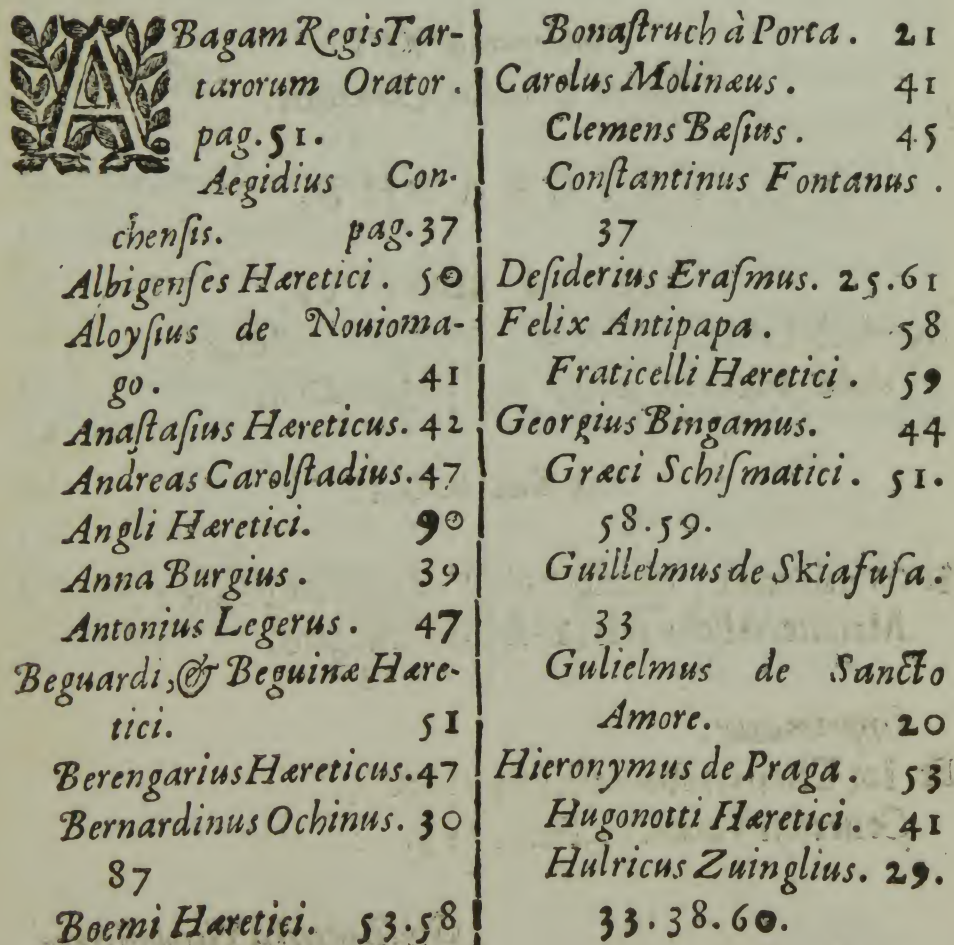 ABagam Regis Tar-
tarorum Orator.
pag. 51.
Aegidius Con-
chenſis. pag. 37
Albigenſes Hæretici. 50
Aloyſius de Nouioma-
go. 41
Anaſtaſius Hæreticus. 42
Andreas Carolſtadius. 47
Angli Hæretici. 90
Anna Burgius. 39
Antonius Legerus. 47
Beguardi, & Beguinæ Hære-
tici. 51
Berengarius Hæreticus. 47
Bernardinus Ochinus. 30
87
Boemi Hæretici. 53.58
Bonaſtruch à Porta. 21
Carolus Molinæus. 41
Clemens Bæſius. 45
Conſtantinus Fontanus.
37
Deſiderius Eraſmus. 25.61
Felix Antipapa. 58
Fraticelli Hæretici. 59
Georgius Bingamus. 44
Græci Schiſmatici. 51.
58.59.
Guillelmus de Skiafuſa.
33
Gulielmus de Sancto
Amore. 20
Hieronymus de Praga. 53
Hugonotti Hæretici. 41
Hulricus Zuinglius. 29.
33.38.60.